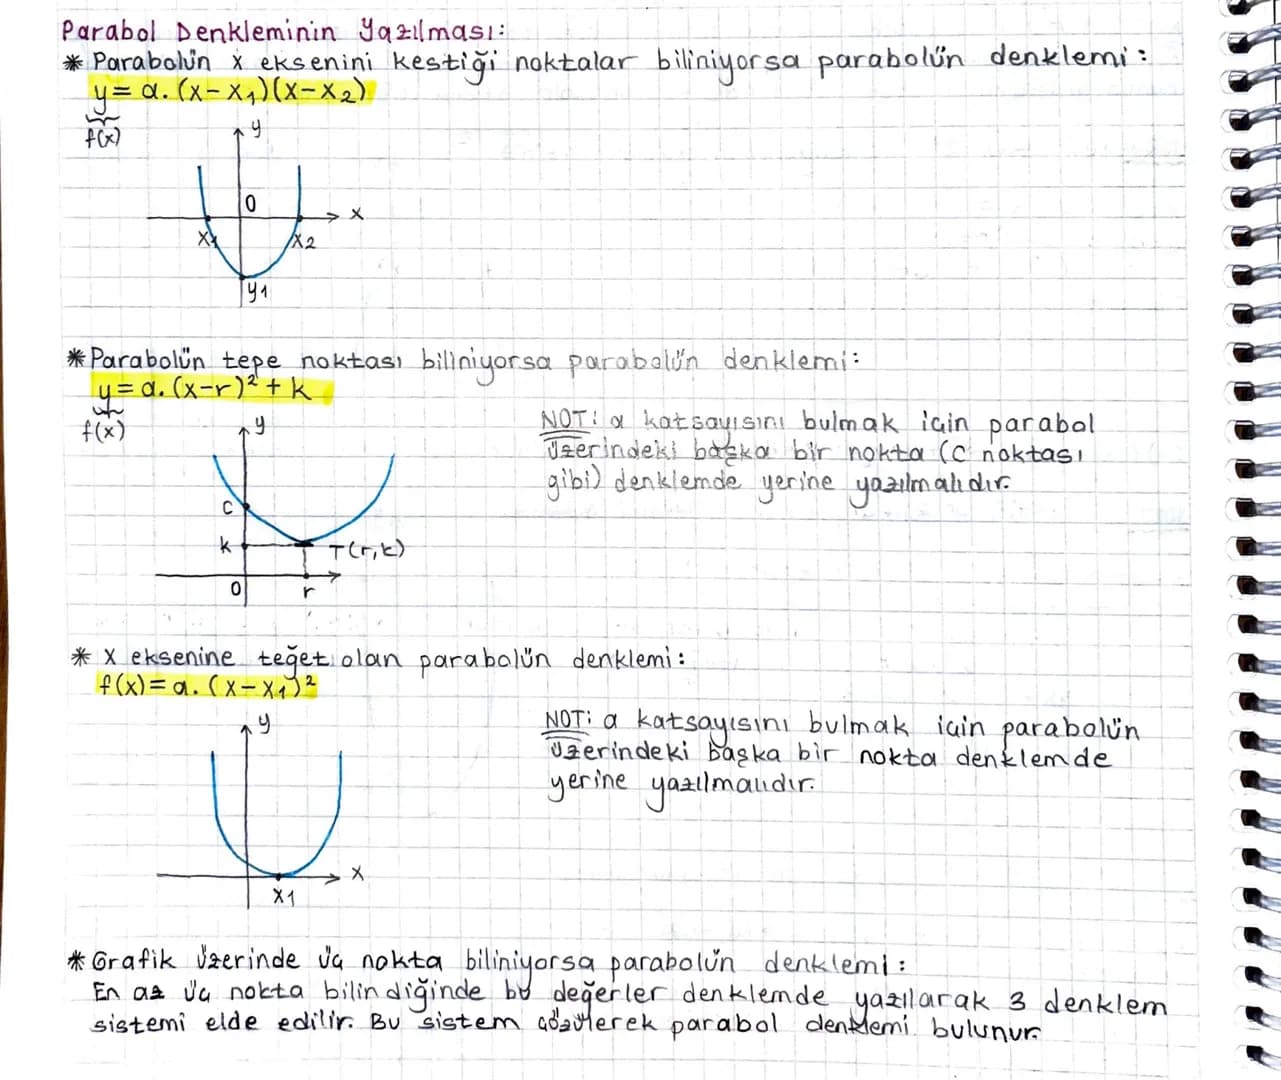 Parabol Denkleminin Yazılması:
* Parabolün x eksenini kestiği noktalar biliniyorsa parabolün denklemi:
y = a.(x-x₁)(x-x₂)
f(x)
y
0
x
x₁
x₂
y₁
* Parabolün tepe noktası biliniyorsa parabolün denklemi:
y = a.(x-r)² + k
f(x)
y
NOT: a katsayısını bulmak için parabol
üzerindeki başka bir nokta (c noktası
gibi) denklemde yerine yazılmalıdır.
c
k
T(r,k)
0
r
* X eksenine teğet olan parabolün denklemi:
f(x) = a.(x-x₁)²
y
NOT: a katsayısını bulmak için parabolün
üzerindeki başka bir nokta denklemde
yerine yazılmalıdır.
x
x₁
* Grafik üzerinde üç nokta biliniyorsa parabolün denklemi:
En az üç nokta bilindiğinde bu değerler denklemde yazılarak 3 denklem
sistemi elde edilir. Bu sistem çözülerek parabol denklemi bulunur.